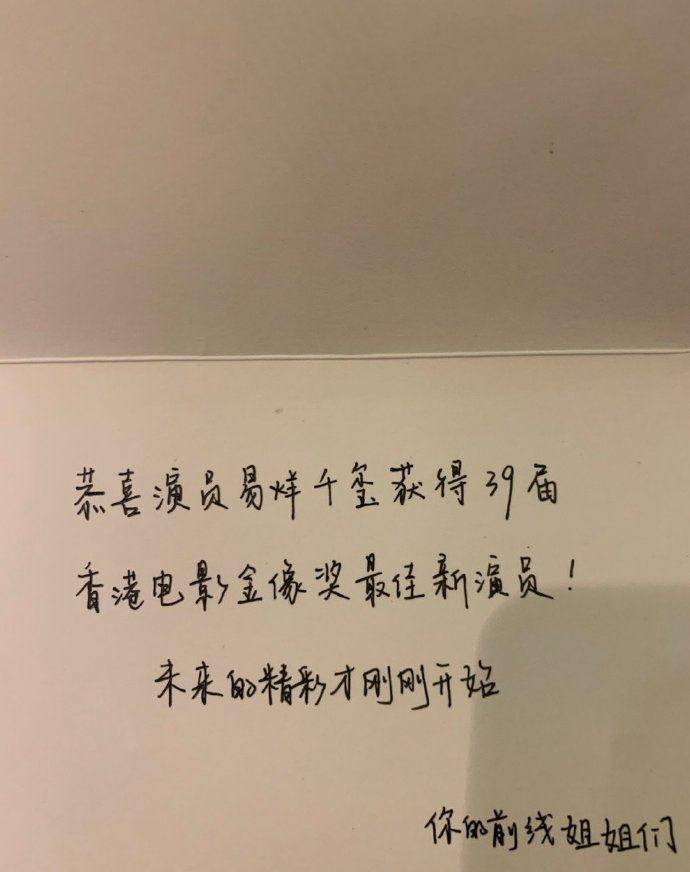 恭喜演员易烊千玺获得39届
香港电影金像奖最佳新演员！
未来的精彩才刚刚开始
你的前线姐姐们